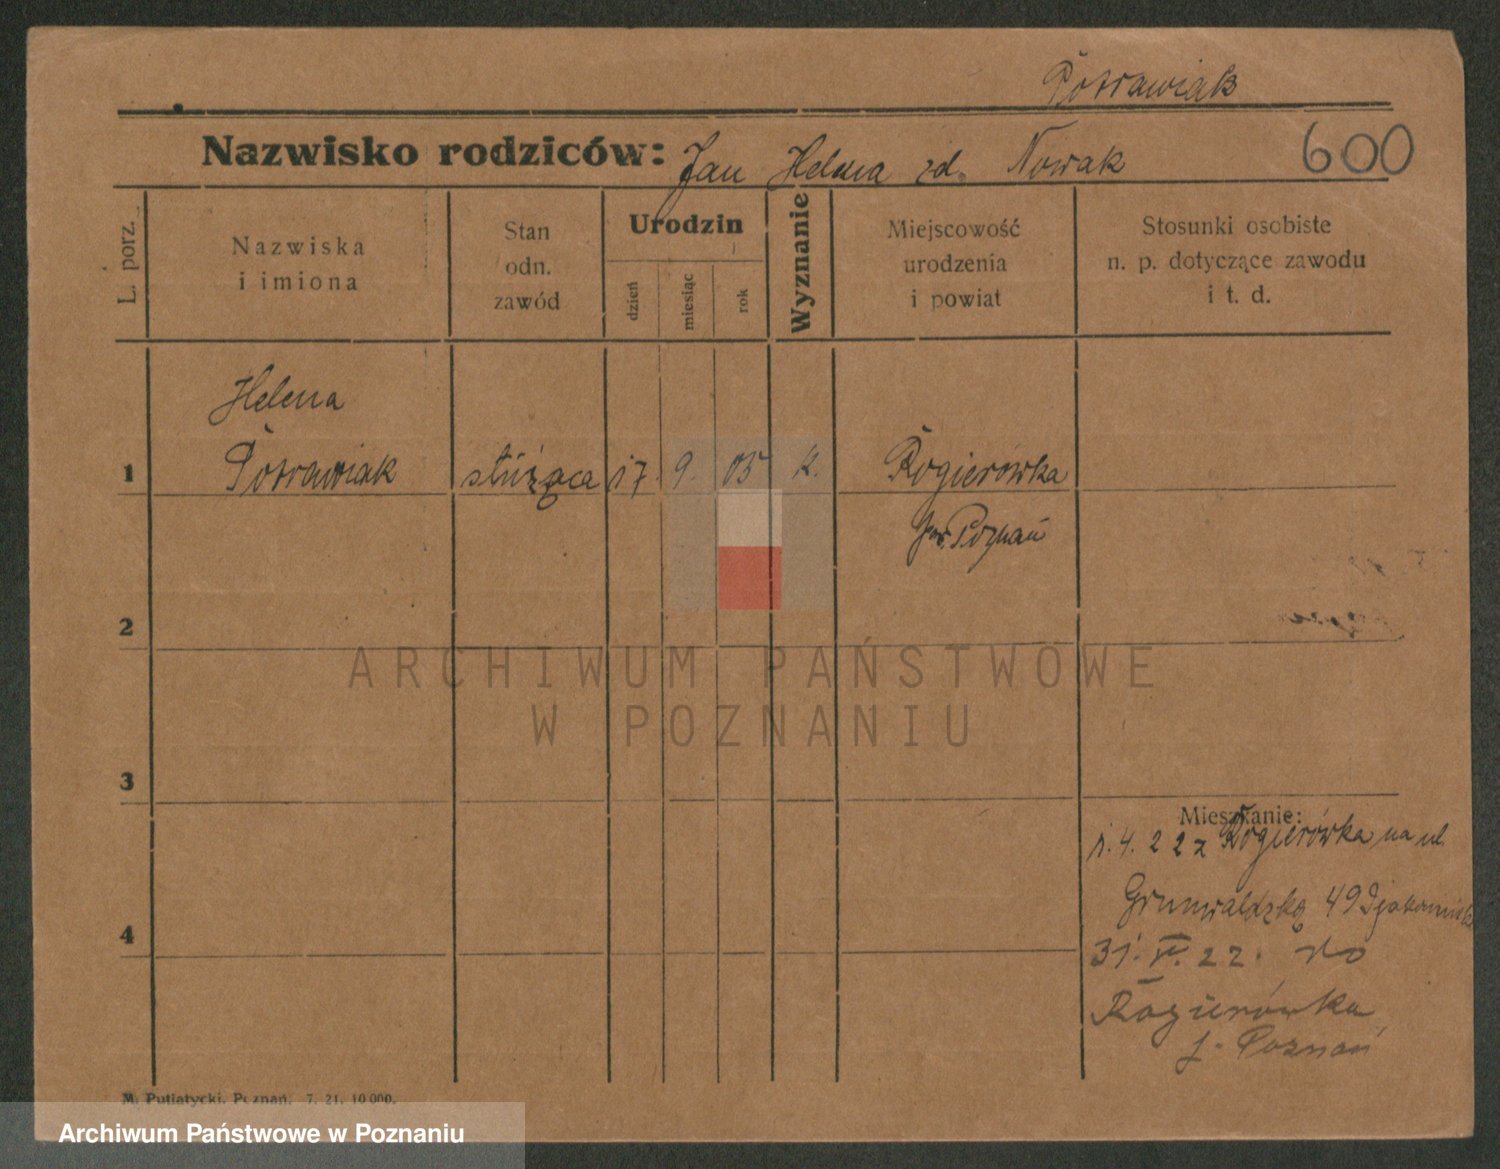 Potrawiak
Nazwisko rodziców: Jan Helena zd. Nowak
600
L. porz.
Nazwiska
i imiona
Stan
odn.
zawód
Urodzin
dzień
miesiąc
rok
Wyznanie
Miejscowość
urodzenia
i powiat
Stosunki osobiste
n. p. dotyczące zawodu
i t. d.
Helena
1 Potrawiak służąca 17. 9. 05 K. Rogierówka
pow. Poznań
2
ARCHIWUM PAŃSTWOWE
W POZNANIU
3
Mieszkanie:
1. 4. 22 z Rogierówka na ul.
Grunwaldzką 49
4
31. 22. do
Rogierówka
p. Poznań
M. Putiatycki, Poznań. 7. 21. 10 000.
Archiwum Państwowe w Poznaniu